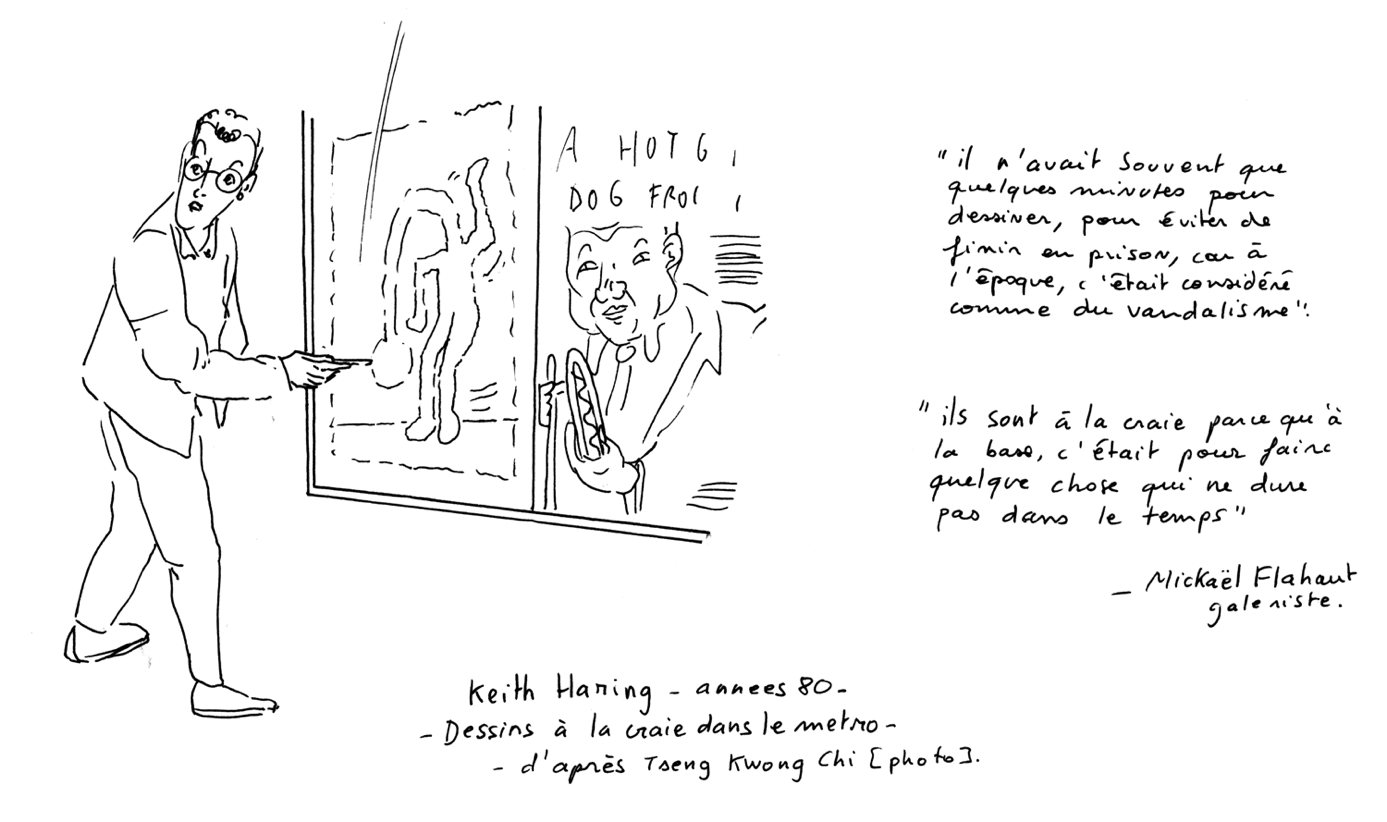 A HOT G
DOG FROM
"il n'avait souvent que
quelques minutes pour
dessiner, pour éviter de
finir en prison, car à
l'époque, c'était considéré
comme du vandalisme".
"ils sont à la craie parce qu'à
la base, c'était pour faire
quelque chose qui ne dure
pas dans le temps"
_ Mickaël Flahaut
galeriste.
Keith Haring - annees 80-
- Dessins à la craie dans le metro -
- d'après Tseng Kwong Chi [photo].